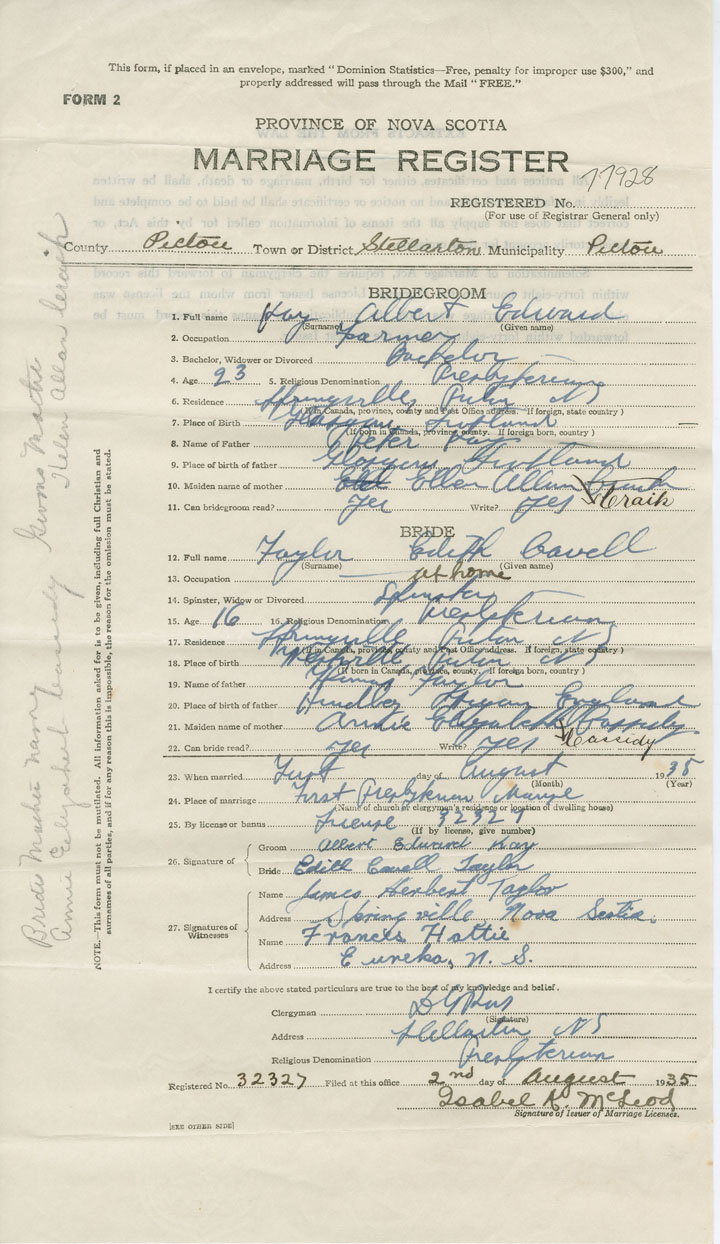 This form, if placed in an envelope, marked "Dominion Statistics—Free, penalty for improper use $300," and
properly addressed will pass through the Mail "FREE."
FORM 2
PROVINCE OF NOVA SCOTIA
MARRIAGE REGISTER
77928
REGISTERED No.
(For use of Registrar General only)
County Pictou Town or District Stellarton Municipality Pictou
BRIDEGROOM
1. Full name Kay Albert Edward
(Surname) (Given name)
2. Occupation Farmer
3. Bachelor, Widower or Divorced Bachelor
4. Age 23 5. Religious Denomination Presbyterian
6. Residence Springville Pictou NS
(If in Canada, province, county and Post Office address. If foreign, state country)
7. Place of Birth Glasgow Scotland
(If born in Canada, province, county. If foreign born, country)
8. Name of Father Peter Kay
9. Place of birth of father Glasgow Scotland
10. Maiden name of mother Ellen Allan
Craik
11. Can bridegroom read? Yes Write? Yes
BRIDE
12. Full name Taylor Edith Cavell
(Surname) (Given name)
13. Occupation at home
14. Spinster, Widow or Divorced Spinster
15. Age 16 16. Religious Denomination Presbyterian
17. Residence Springville Pictou NS
(If in Canada, province, county and Post Office address. If foreign, state country)
18. Place of birth Westville Pictou NS
(If born in Canada, province, county. If foreign born, country)
19. Name of father Taylor
20. Place of birth of father Hindley England
21. Maiden name of mother Annie Elizabeth Cassidy
Cassidy
22. Can bride read? Yes Write? Yes
23. When married First day of August 1935
(Month) (Year)
24. Place of marriage First Presbyterian Manse
(Name of church or clergymen's residence or location of dwelling house)
25. By license or banns License 32327
(If by license, give number)
26. Signature of
Groom Albert Edward Kay
Bride Edith Cavell Taylor
27. Signatures of Witnesses
Name James Herbert Taylor
Address Springville Nova Scotia.
Name Francis Hattie
Address Eureka, N. S.
I certify the above stated particulars are true to the best of my knowledge and belief.
Clergyman
(Signature)
Address Stellarton NS
Religious Denomination Presbyterian
Registered No. 32327 Filed at this office 2nd day of August 1935
Isabel K. McLeod
Signature of Issuer of Marriage Licenses.
[SEE OTHER SIDE]
NOTE.—This form must not be mutilated. All information asked for is to be given, including full Christian and
surnames of all parties, and if for any reason this is impossible, the reason for the omission must be stated.
Brides Mother Name
Annie Elizabeth Cassidy
Grooms Mother
Helen Allan Craik